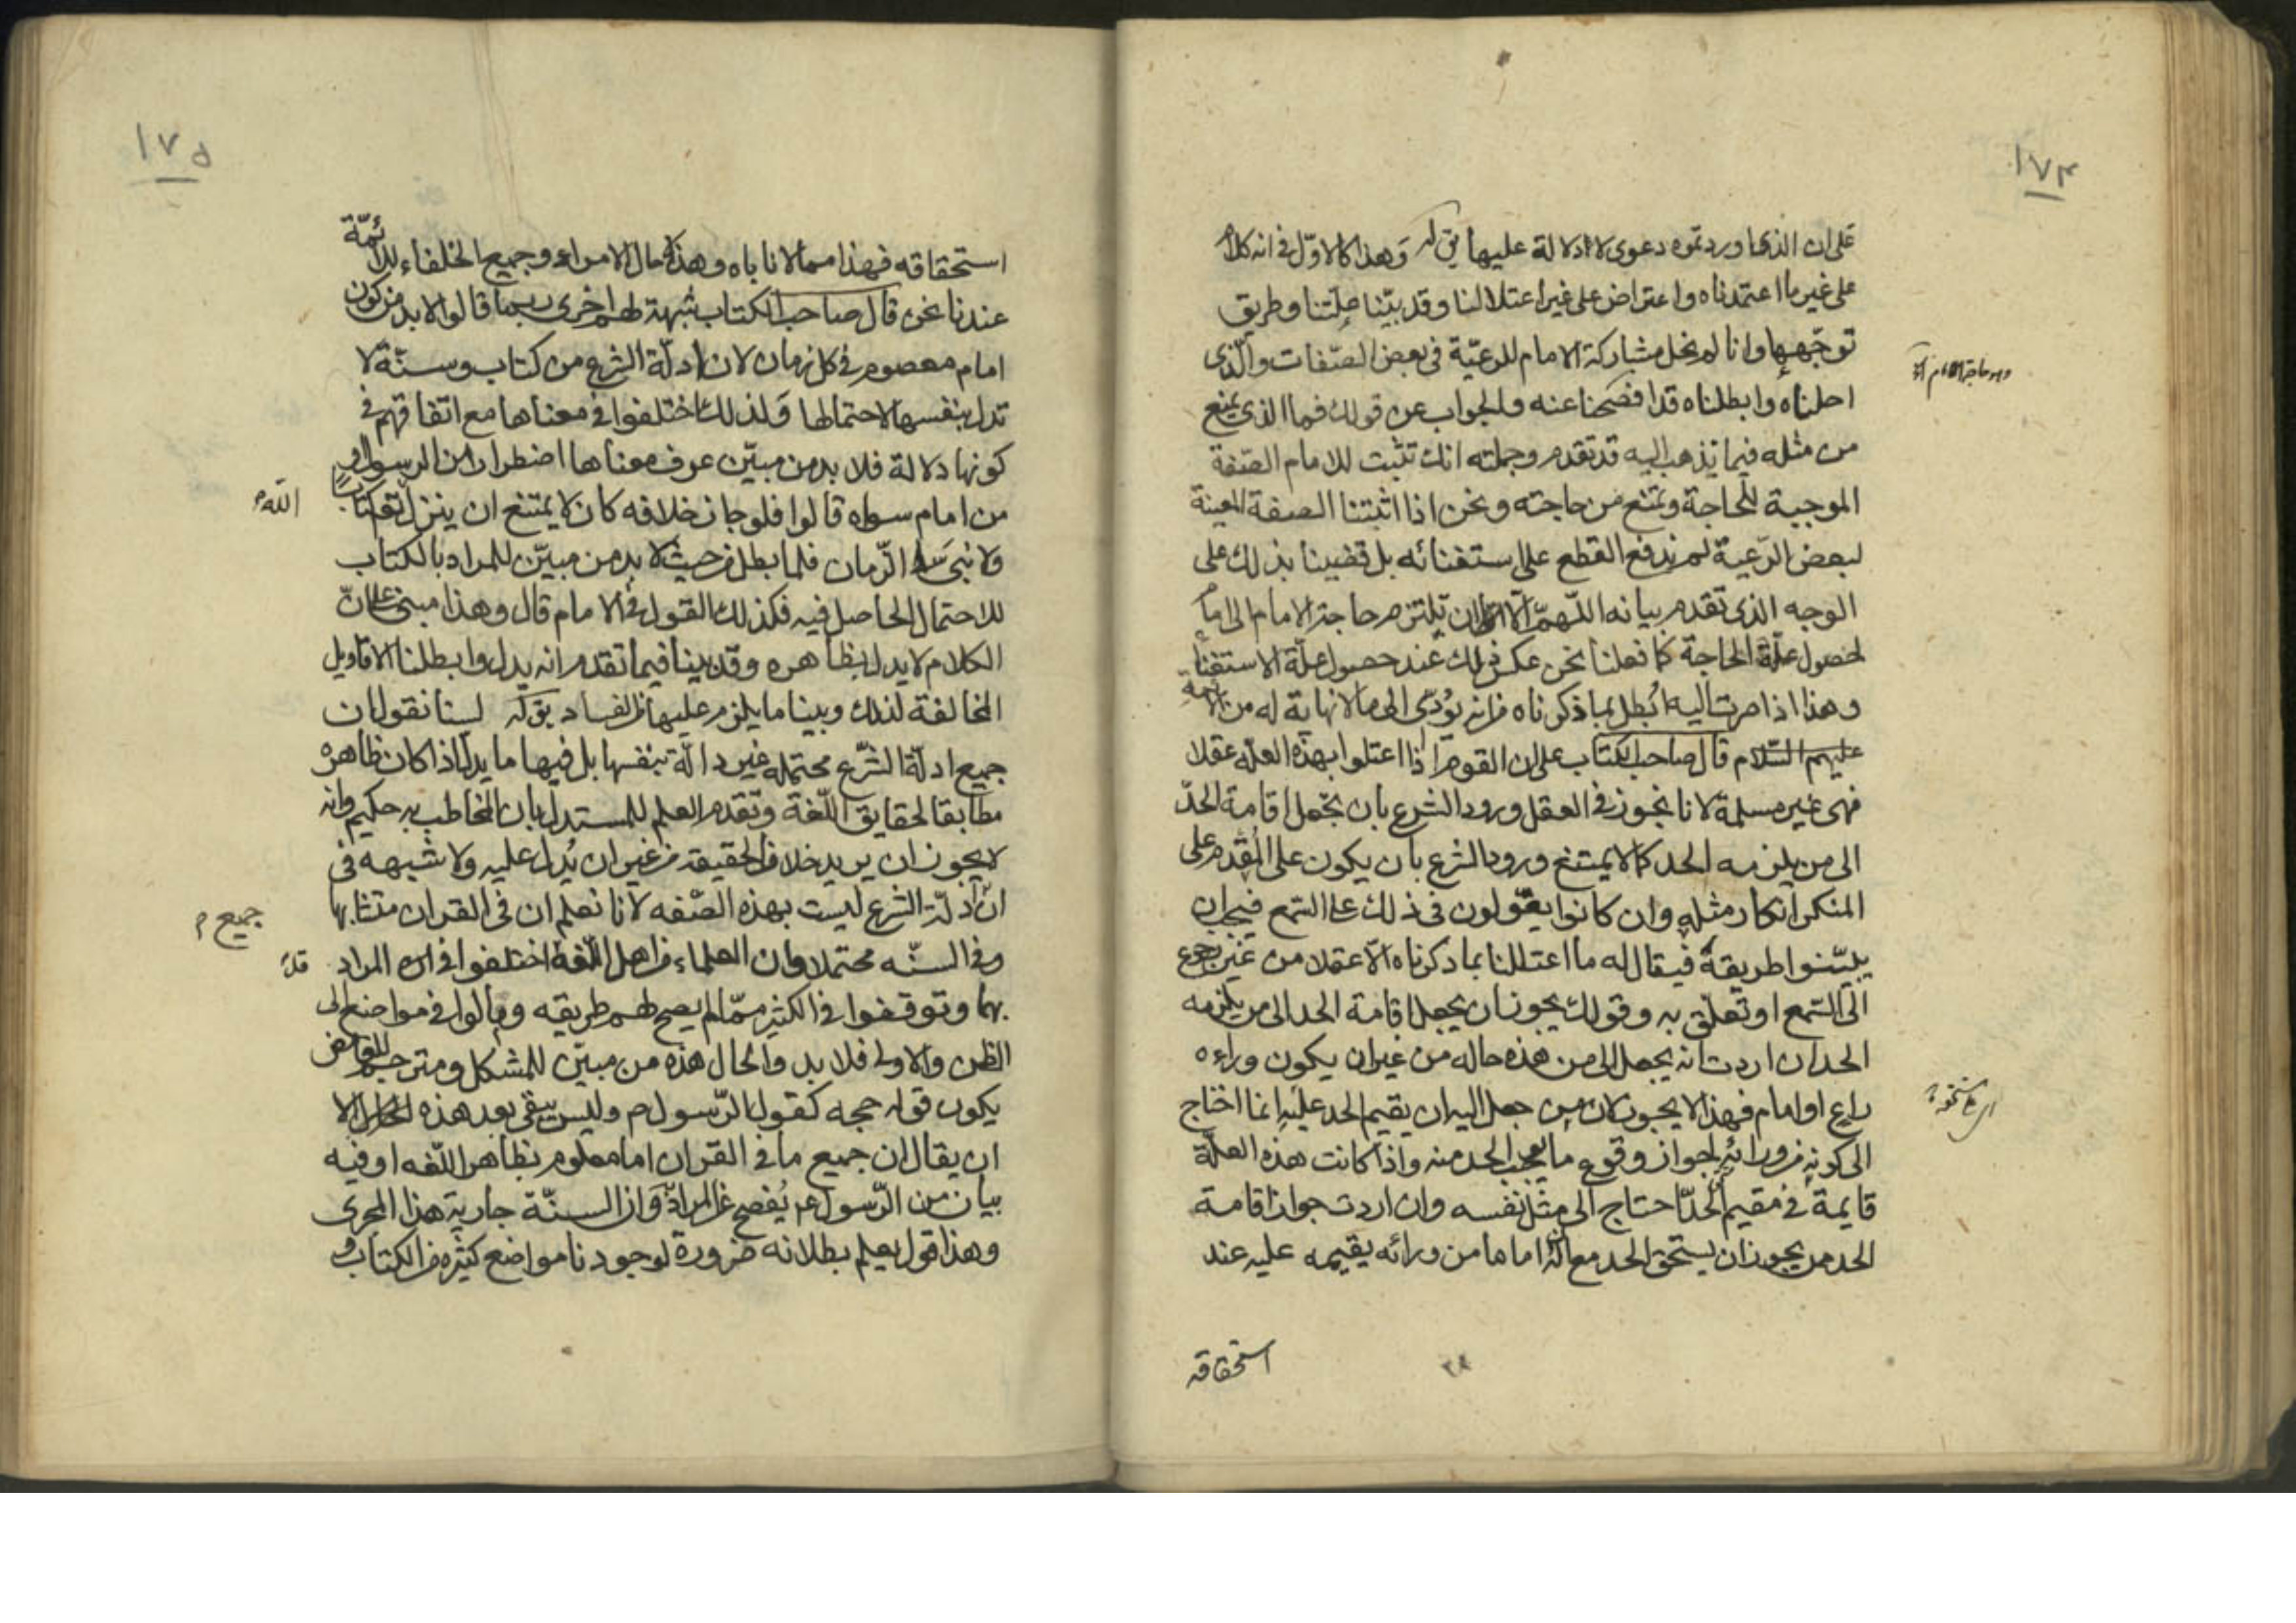 ١٧٤
على ان الذى اوردتموه دعوى لا دلالة عليها يق له وهذا كالاول فى انه كلام
على غير ما اعتمدناه واعتراض على غير اعتلالنا وقد بيّنا علّتنا وطريق
توجّهها وانا لم نحل مشاركة الامام للرعيّة فى بعض الصّفات والّذى
احلناه وابطلناه قد افصحنا عنه والجواب عن قولك فما الذى يمنع
من مثله فيما تذهب اليه قد تقدم وجملته انك تثبت للامام الصّفة
الموجبة للحاجة وتمنع من حاجته ونحن اذا اثبتنا الصفة المعينة
لبعض الرّعية لم ندفع القطع على استغنائه بل قضينا بذلك على
الوجه الذى تقدم بيانه اللّهمّ الا ان تلتزم حاجة الامام الى امام
لحصول علّة الحاجة كما فعلنا نحن عكس ذلك عند حصول علّة الاستغناء
وهذا اذا صرت اليه ابُطل بما ذكرناه من انه يُؤدّى الى ما لا نهاية له من الائمة
عليهم السّلام قال صاحب الكتاب على ان القوم اذا اعتلوا بهذه العلّه عقلا
فهى غير مسلمة لانا نجوز فى العقل ورود الشرع بان نجعل اقامة الحدّ
الى من يلزمه الحد كما لا يمتنع ورود الشرع بان يكون على المُقدم على
المنكر انكار مثله وان كانوا يقولون فى ذلك على السّمع فيجب ان
يبيّنوا طريقة فيقال له ما اعتللنا بما ذكرناه الّا عقلا من غير رجوع
الى السّمع او تعلّق به وقولك يجوز ان يجعل اقامة الحد الى من يلزمه
الحد ان اردت انه يجعل الى من هذه حاله من غير ان يكون وراءه
راع او امام فهذا لا يجوز لان من جعل اليه ان يقيم الحد عليه انما احتاج
الى كونه من ورائه لجواز وقوع ما يجب الحد منه واذا كانت هذه العلّة
قايمة فى مقيم الحدّ احتاج الى مثل نفسه وان اردت جواز اقامة
الحد من يجوز ان يستحق الحد مع ان اماما من ورائه يقيمه عليه عند
استحقاقه
١٧٥
استحقاقه فهذا مما لا ناباه وهذه حال الامراء وجميع الخلفاء للائمّة
عندنا نحن قال صاحب الكتاب شبهة لهم اخرى ربما قالوا لا بد من كون
امام معصوم فى كل زمان لان ادلّة الشرع من كتاب وسنّة لا
تدل بنفسها لاحتمالها ولذلك اختلفوا فى معناها مع اتفاقهم فى
كونها دلالة فلا بد من مبيّن عرف معناها اضطرارا من الرسول او
من امام سواه قالوا فلو جاز خلافه كان لا يمتنع ان ينزل تع كتابا
ولا نبى فى الزمان فلما بطل من حيث لا بد من مبيّن للمراد بالكتاب
الله م
للاحتمال الحاصل فيه فكذلك القول فى الامام قال وهذا مبنى على انّ
الكلام لا يدل بظاهره وقد بينا فيما تقدم انه يدل وابطلنا الاقاويل
المخالفة لذلك وبينا ما يلزم عليها من الفساد يق له لسنا نقول ان
جميع ادلّة الشّرع محتمله غير دالّة بنفسها بل فيها ما يدل اذا كان ظاهره
مطابقا لحقايق اللّغة وتقدم العلم للمستدل بان المخاطب به حكيم وانه
لا يجوز ان يريد خلاف الحقيقة من غير ان يُدل عليه ولا شبهه فى
انّ ادلّة الشرع ليست بهذه الصّفه لانا نعلم ان فى القران متشابها
جميع م
وفى السنّه محتملا وان العلماء من اهل اللّغة اختلفوا فى المراد
قد
بهما وتوقفوا فى الكثير ممّا لم يصح لهم طريقه ومالوا فى مواضع الى
الظن والاولى فلا بد والحال هذه من مبيّن للمشكل ومترجم للغامض
يكون قوله حجه كقول الرّسول م وليس يبقى بعد هذه الا
ان يقال ان جميع ما فى القران اما معلوم بظاهر اللّغه او فيه
بيان من الرّسول ع م يُفصح عن المراد وان السنّة جارية هذا المجرى
وهذا قول يعلم بطلانه ضرورة لوجودنا مواضع كثيره من الكتاب و